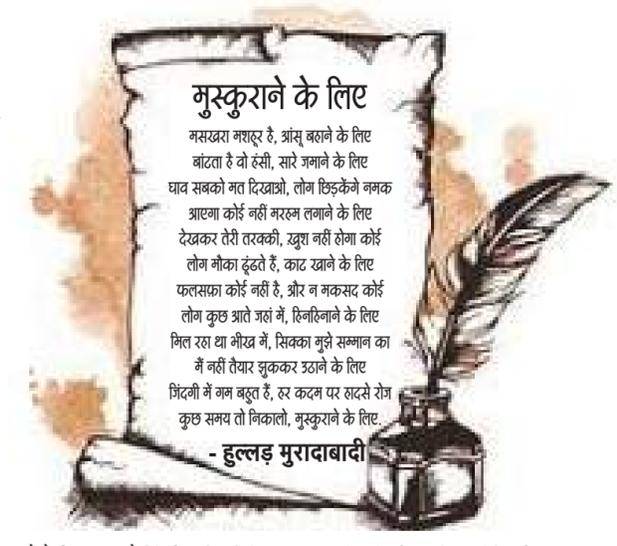 मुस्कुराने के लिए
मसखरा मशहूर है, आंसू बहाने के लिए
बांटता है वो हंसी, सारे जमाने के लिए
घाव सबको मत दिखाओ, लोग छिड़केंगे नमक
आएगा कोई नहीं मरहम लगाने के लिए
देखकर तेरी तरक्की, ख़ुश नहीं होगा कोई
लोग मौका ढूंढते हैं, काट खाने के लिए
फलसफ़ा कोई नहीं है, और न मकसद कोई
लोग कुछ आते जहां में, हिनहिनाने के लिए
मिल रहा था भीख में, सिक्का मुझे सम्मान का
मैं नहीं तैयार झुककर उठाने के लिए
जिंदगी में गम बहुत हैं, हर कदम पर हादसे रोज
कुछ समय तो निकालो, मुस्कुराने के लिए
- हुल्लड़ मुरादाबादी